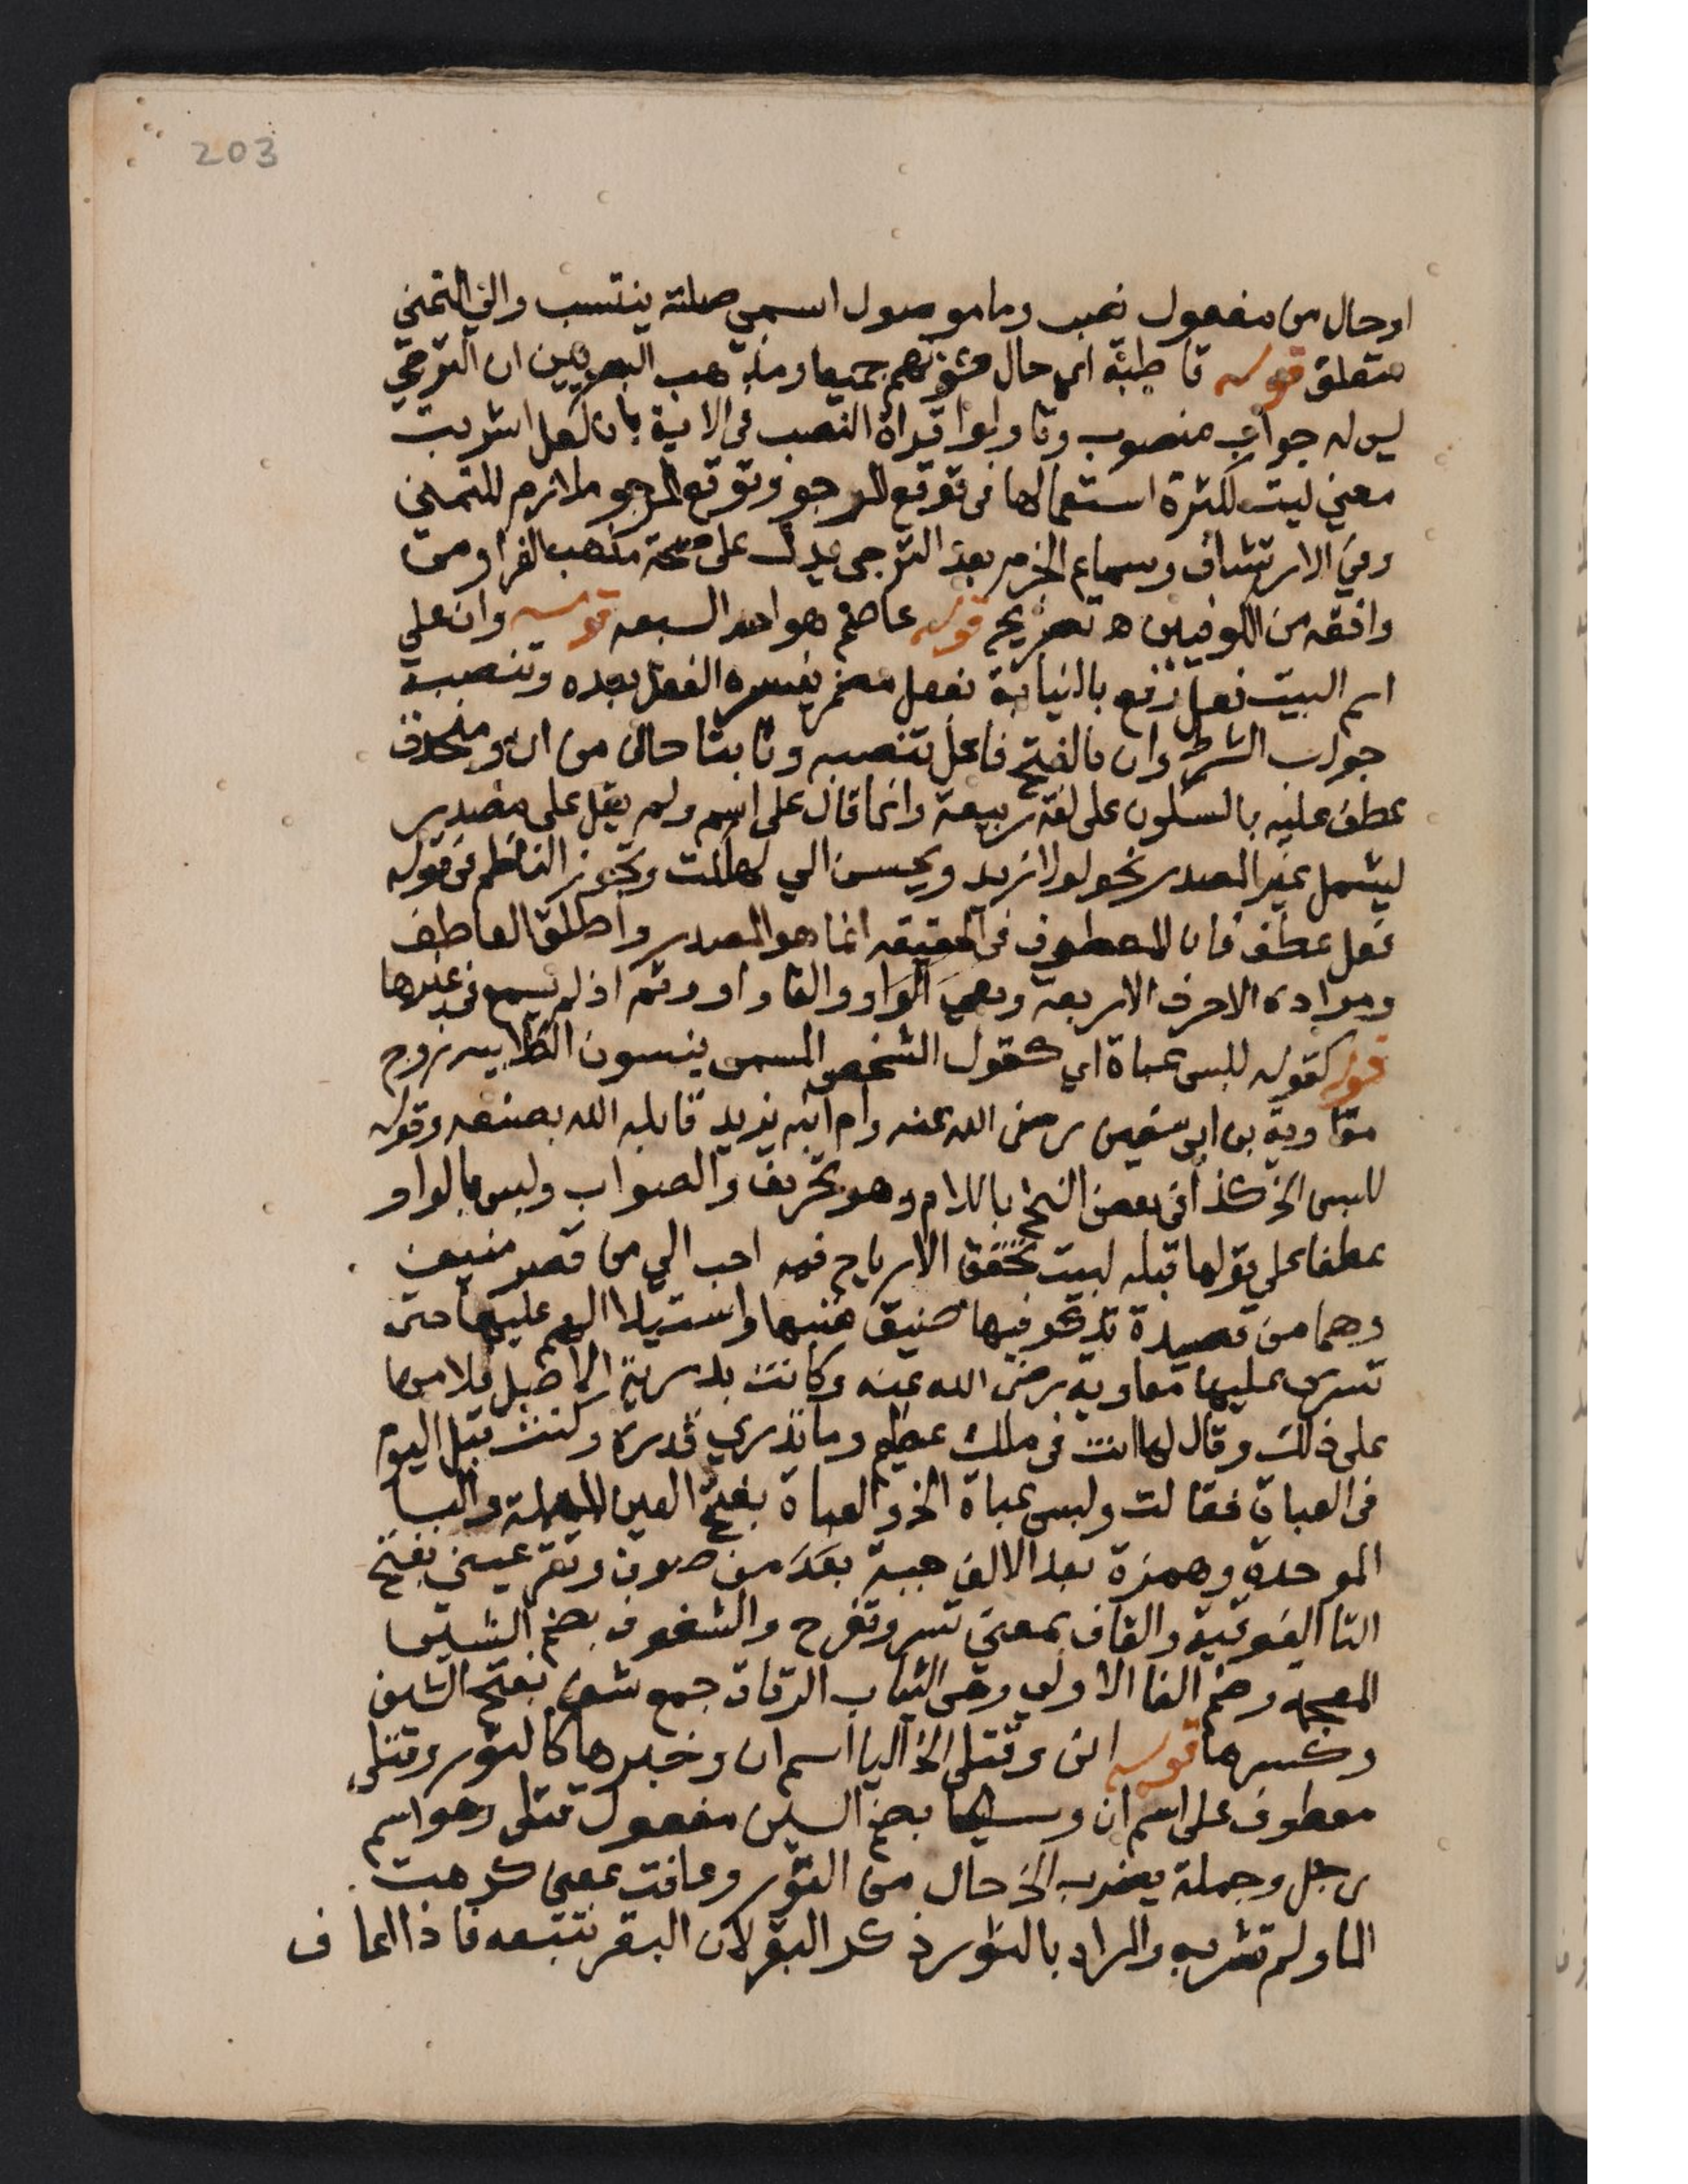 203
او حال من مفعول نصب وما موصول اسمي صلته ينتسب والي التمني
متعلق قوله قاطبة اي حال كونهم جميعا ومذهب البصريين ان الترجي
ليس له جواب منصوب وتاولوا قراة النصب في الاية بان لعل اشربت
معني ليت لكثرة استعمالها في توقع المرجو وتوقع المرجو ملازم للتمني
وفي الارتشاف وسماع الجزم بعد الترجي يدل على صحة مذهب الفرا ومن
وافقه من الكوفيين ه تصريح قوله عاصم هو احد السبعه قوله وان علي
اسم البيت فعل رفع بالنيابة بفعل مضمر يفسره الفعل بعده وتنصبه
جواب الشرط وان بالفتح فاعل تنصبه وثابتا حال من ان ومنحذف
عطف عليه بالسكون على لغة ربيعة وانما قال على اسم ولم يقل على مصدر
ليشمل غير المصدر نحو لولا زيد ويحسن الي لهلكت وتجوز الناظم في قوله
فعل عطف فان المعطوف في الحقيقه انما هو المصدر واطلق العاطف
ومراده الاحرف الاربعة وهي الواو والفا واو وثم اذ لم يسمع في غيرها
قوله كقوله للبس عباة اي كقول الشخص المسمى بنسون الكلابيه زوج
معاوية بن ابي سفين رضي الله عنه وام ابنه يزيد قابله الله بصنعه وقوله
للبس الخ كذا في بعض النسخ باللام وهو تحريف والصواب ولبس بالواو
عطفا على قولها قبله لبيت تخفق الارياح فيه احب الي من قصر منيف
وهما من قصيدة تذكر فيها ضيق نفسها واستيلا الهم عليها حين
تسرى عليها معاوية رضي الله عنه وكانت بدرية الاصل فلامها
على ذلك وقال لها انت في ملك عظيم وما تدري قدره وكنت قبل اليوم
في العباة فقالت ولبس عباة الخ والعباة بفتح العين المهملة والبا
الموحدة وهمزة بعد الالف جبة من صوف وتقر عيني بفتح
التا الفوقية والقاف بمعني تسر وتفرح والشفوف بضم الشين
المعجمة وضم الفا الاولي وهي الثياب الرقاق جمع شف بفتح الشين
وكسرها قوله اني وقتلي الخ اليا اسم ان وخبرها كالثور وقتلي
معطوف على اسم ان وسليكا بضم السين مفعول قتلى وهو اسم
رجل وجملة يضرب الخ حال من الثور وعافت بمعني كرهت
الما ولم تشربه والمراد بالثور ذكر البقر لان البقر تتبعه فاذا عاف